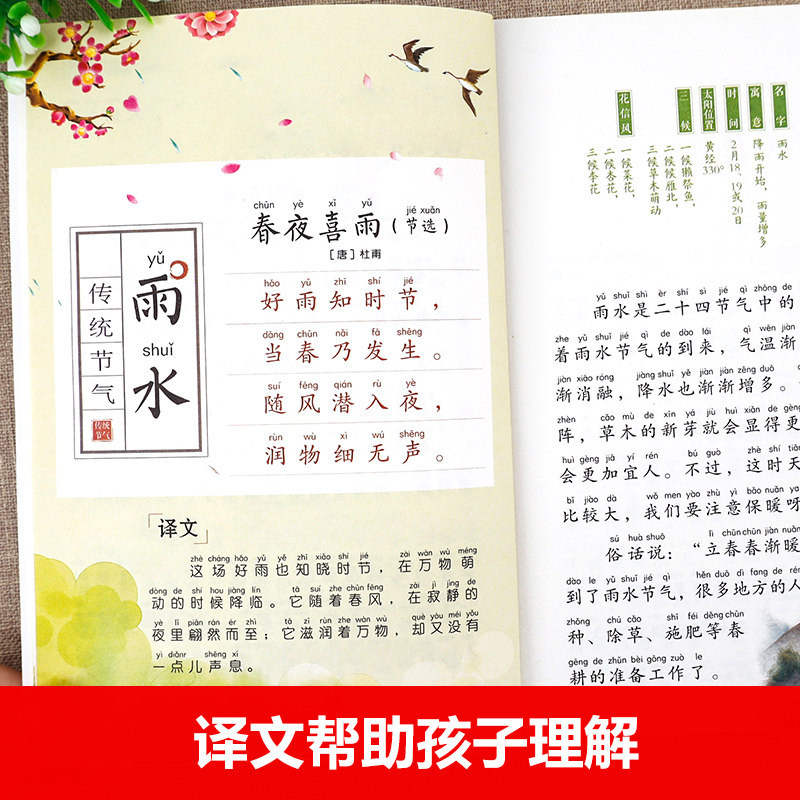 yǔ
雨
shuǐ
水
传统节气
传统
节气
chūn yè xǐ yǔ jié xuǎn
春夜喜雨(节选)
[唐] 杜甫
hǎo yǔ zhī shí jié
好雨知时节，
dāng chūn nǎi fā shēng
当春乃发生。
suí fēng qián rù yè
随风潜入夜，
rùn wù xì wú shēng
润物细无声。
译文
zhè cháng hǎo yǔ yě zhī xiǎo shí jié zài wàn wù méng
这场好雨也知晓时节，在万物萌
dòng de shí hou jiàng lín tā suí zhe chūn fēng zài jì jìng de
动的时候降临。它随着春风，在寂静的
yè lǐ piān rán ér zhì tā zī rùn zhe wàn wù què yòu méi yǒu
夜里翩然而至；它滋润着万物，却又没有
yì diǎnr shēng xī
一点儿声息。
名字 雨水
寓意 降雨开始，雨量增多
时间 2月18、19或20日
太阳位置 黄经330°
三候 一候獭祭鱼，
二候候雁北，
三候草木萌动
花信风 一候菜花，
二候杏花，
三候李花
yǔ shuǐ shì èr shí sì jié qì zhōng de
雨水是二十四节气中的
zhe yǔ shuǐ jié qì de dào lái qì wēn jiàn
着雨水节气的到来，气温渐
jiàn xiāo róng jiàng shuǐ yě jiàn jiàn zēng duō
渐消融，降水也渐渐增多。
zhèn cǎo mù de xīn yá jiù huì xiǎn de gèng
阵，草木的新芽就会显得更
huì gèng jiā yí rén bú guò zhè shí tiān
会更加宜人。不过，这时天
bǐ jiào dà wǒ men yào zhù yì bǎo nuǎn ya
比较大，我们要注意保暖呀
sú huà shuō lì chūn chūn jiàn nuǎn
俗话说：“立春春渐暖
dào le yǔ shuǐ jié qì hěn duō dì fang de rén
到了雨水节气，很多地方的人
zhǒng chú cǎo shī féi děng chūn
种、除草、施肥等春
gēng de zhǔn bèi gōng zuò le
耕的准备工作了。
译文帮助孩子理解